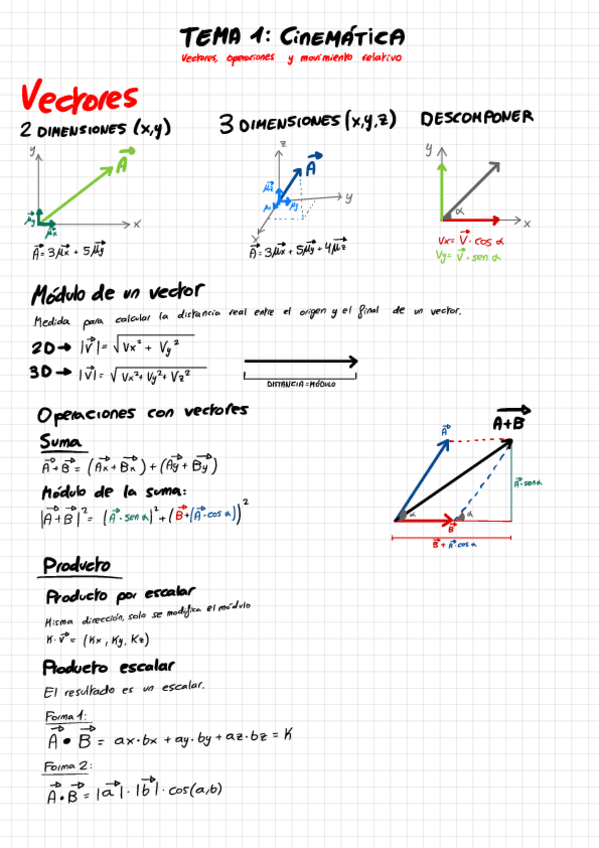 TEMA 1: CINEMÁTICA
Vectores, operaciones y movimiento relativo
Vectores
2 DIMENSIONES (x,y)
3 DIMENSIONES (x,y,z)
DESCOMPONER
y
A⃗
μ⃗y
μ⃗x
x
A⃗ = 3μ⃗x + 5μ⃗y
z
A⃗
μ⃗z
μ⃗x
μ⃗y
y
x
A⃗ = 3μ⃗x + 5μ⃗y + 4μ⃗z
y
α
x
Vx = V⃗ · cos α
Vy = V⃗ · sen α
Módulo de un vector
Medida para calcular la distancia real entre el origen y el final de un vector.
2D → |V⃗| = √(Vx² + Vy²)
3D → |V⃗| = √(Vx² + Vy² + Vz²)
DISTANCIA = MÓDULO
Operaciones con vectores
Suma
A⃗ + B⃗ = (A⃗x + B⃗x) + (A⃗y + B⃗y)
Módulo de la suma:
|A⃗ + B⃗|² = (A⃗ · sen α)² + (B⃗ + (A⃗ · cos α))²
A⃗
A+B
A⃗ · sen α
α
α
B⃗
B⃗ + A⃗ · cos α
Producto
Producto por escalar
Misma dirección, solo se modifica el módulo
K · V⃗ = (Kx, Ky, Kz)
Producto escalar
El resultado es un escalar.
Forma 1:
A⃗ • B⃗ = ax · bx + ay · by + az · bz = K
Forma 2:
A⃗ • B⃗ = |a⃗| · |b⃗| · cos(a,b)